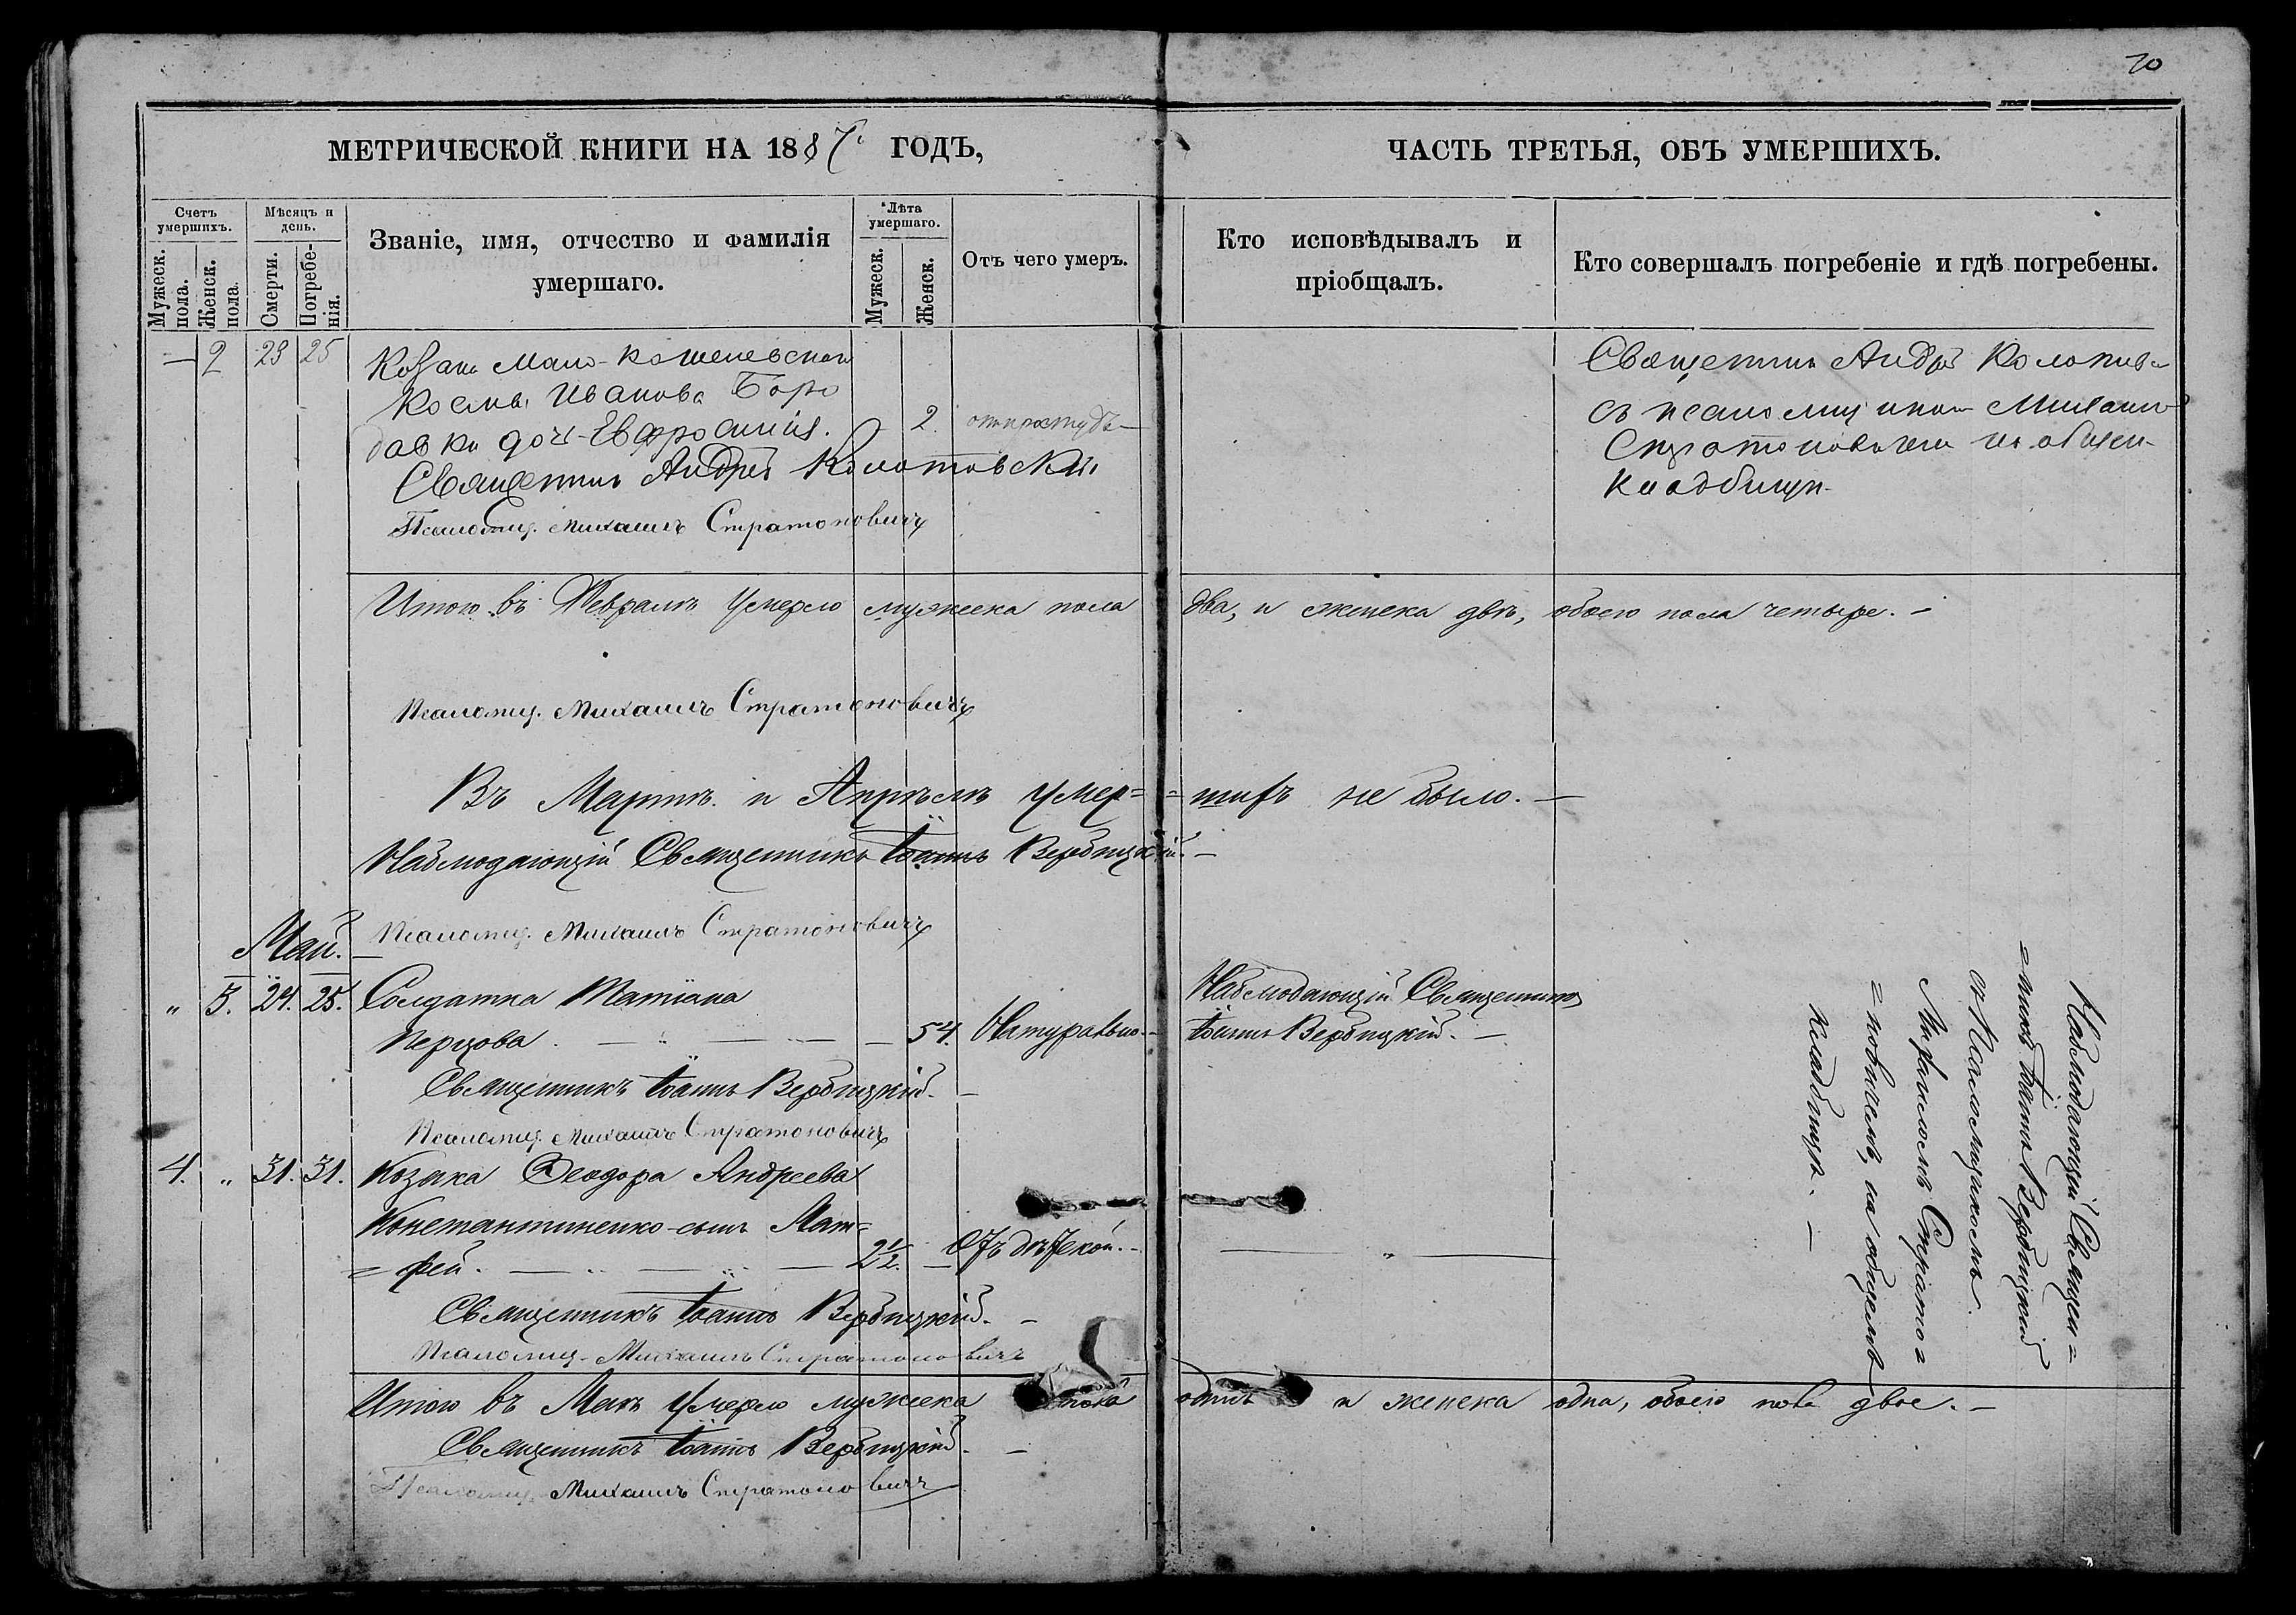 70
МЕТРИЧЕСКОЙ КНИГИ НА 1887. ГОДЪ,
ЧАСТЬ ТРЕТЬЯ, ОБЪ УМЕРШИХЪ.
Счетъ умершихъ.
Мужеск. пола.
Женск. пола.
Мѣсяцъ и день.
Смерти.
Погребенія.
Званіе, имя, отчество и фамилія умершаго.
Лѣта умершаго.
Мужеск.
Женск.
Отъ чего умеръ.
Кто исповѣдывалъ и пріобщалъ.
Кто совершалъ погребеніе и гдѣ погребены.
— 2 23 25
Козака Мало-Кошелевскаго
Космы Иванова Боро
давки дочь Евфросинія. 2. отъ простуды
Священникъ Андрей Колотовскій
Псаломщ. Михаилъ Стратоновичъ
Священникъ Андрей
съ псаломщикомъ Михаиломъ
Стратоновичемъ на общем
кладбищѣ
Итого въ Февралѣ умерло мужеска пола два, и женска двѣ, обоего пола четыре. —
Псаломщ. Михаилъ Стратоновичъ
Въ Мартѣ и Апрѣлѣ умер=
=шихъ не было. —
Наблюдающій Священникъ Іоаннъ Вербицкій. —
Псаломщ. Михаилъ Стратоновичъ
Май.
„ 3. 24. 25. Солдатка Татіана
Перцова. — 54. Натурально. —
Священникъ Іоаннъ Вербицкій. —
Псаломщ. Михаилъ Стратоновичъ
Наблюдающій Священникъ
Іоаннъ Вербицкій. —
4. „ 31. 31. Козака Ѳеодора Андреева
Константиненко сынъ Мат=
=фей. — 2 1/2. — Отъ дѣтской. —
— „ —
Священникъ Іоаннъ Вербицкій. —
Псаломщ. Михаилъ Стратоновичъ
Наблюдающій Священ=
=никъ Іоаннъ Вербицкій
съ Псаломщикомъ
Михаиломъ Страто=
=новичемъ, на общемъ
кладбищѣ. —
Итого въ Маѣ умерло мужеска пола одинъ и женска одна, обоего пола двое. —
Священникъ Іоаннъ Вербицкій. —
Псаломщ. Михаилъ Стратоновичъ